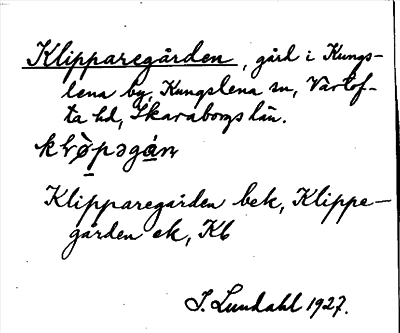 Klipparegården, gård i Kungs-
lena by, Kungslena sn, Vartof-
ta hd, Skaraborgs län.
Klipparegården bek, Klippe-
gården ek, Kb
I. Lundahl 1927.